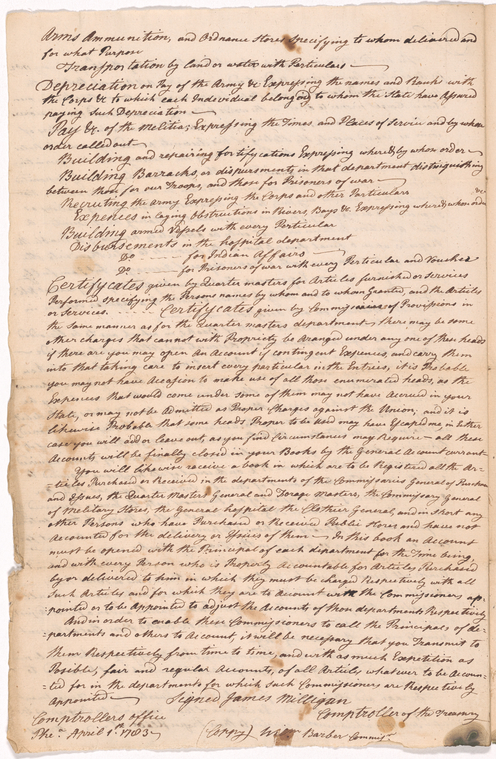 Arms Ammunition, and Ordnance Stores specifying to whom delivered and
for what Purpose
Transportation by land or water with Particulars
Depreciation on Pay of the Army &c Expressing the names and Rank with
the Corps &c to which each Individual belong and to whom the State have Assured
paying Such Depreciation
Pay &c. of the Melitia; Expressing the Times and Places of Service and by whom
order called out
Building and repairing fortifycations Expressing where & by whom order
Building Barracks, or disbursments in that department distinguishing
between those for our Troops, and those for Prisoners of war
Recruting the army Expressing the Corps and other Particulars &c
Expences in laying obstructions in Rivers, Bays &c. Expressing where & whom order
Building armed Vessels with every Particular
Disbursements in the hospital department
Do. for Indian Affairs
Do. for Prisoners of war with every Particular and Voucher
Certifycates given by Quarter masters for Articles furnished or services
Performed specifying the Persons names by whom and to whom Granted, and the Articles
or Services. Certifycates given by Commissaries of Provissions in
the same manner as for the Quarter masters department, there may be some
other charges that cannot with Propriety be Aranged under any one of these heads
if there are you may open an Account of contingent Expences, and carry them
into that taking care to insert every particular in the Entries, it is Probable
you may not have Accasion to make use of all those enumerated heads, as the
Expences that would come under some of them may not have Accrued in your
State, or may not be Admitted as Proper Charges against the Union; and it is
likewise Probable that some heads Proper to be Used may have Escaped me, in Either
case you will add or leave out, as you find Circumstances may Require — all these
Accounts will be finally closed in your Books by the General Account currant
You will likewise receive a book in which are to be Registered all the Ar-
-ticles Purchased or Received in the departments of the Commissaries General of Purchases
and Issues, the Quarter Master General and Forage Masters, the Commissary General
of Melitary Stores, the General hospital the Clothier General, and in short any
other Persons who have Purchased or Received Public Stores and have not
Accounted for the delivery or Issues of them — In this book an Account
must be opened with the Principal of each department for the Time being,
and with every Person who is Properly Accountable for Articles Purchased
by or delivered to him in which they must be charged Respectively with all
Such Articles and for which they are to Account with the Commissioners ap-
-pointed or to be Appointed to adjust the Accounts of those departments Respectively
And in order to enable these Commissioners to call the Principals of de-
-partments and others to Account, it will be necessary that you Transmit to
them Respectively from time to time, and with as much Expedition as
Posible, fair and regular Accounts, of all Articles whatever to be Accoun-
-ted for in the departments for which such Commissioners are Respectively
appointed — Signed James Milligan
Comptroller of the Treasury
Comptrollers office
Pha. April 1st. 1783 (Coppy) Wm. Barber Commisr.